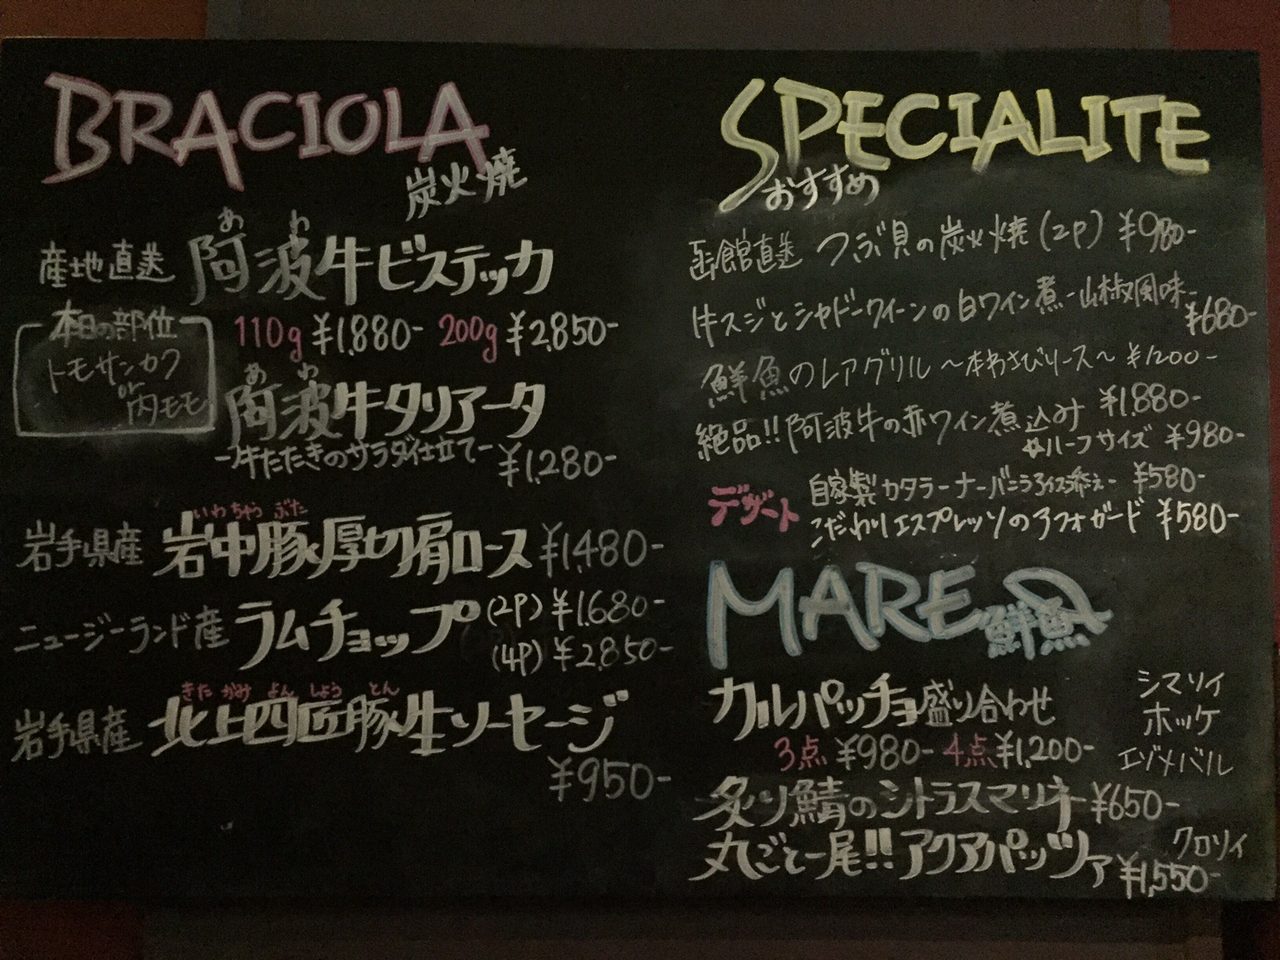 BRACIOLA
炭火焼
産地直送 阿波牛ビステッカ
あわ
本日の部位
トモサンカク
or
内モモ
110g ¥1,880- 200g ¥2,850-
あわ
阿波牛タリアータ
-牛たたきのサラダ仕立て- ¥1,280-
いわちゅうぶた
岩手県産 岩中豚厚切肩ロース ¥1,480-
ニュージーランド産 ラムチョップ (2P) ¥1,680-
(4P) ¥2,850-
きたかみよんしょうとん
岩手県産 北上四匠豚生ソーセージ
¥950-
SPECIALITE
おすすめ
函館直送 つぶ貝の炭火焼(2P) ¥980-
牛スジとシャドークイーンの白ワイン煮-山椒風味-
¥680-
鮮魚のレアグリル ～本わさびソース～ ¥1200-
絶品!! 阿波牛の赤ワイン煮込み ¥1,880-
ハーフサイズ ¥980-
デザート 自家製カタラーナ-バニラアイス添え- ¥580-
こだわりエスプレッソのアフォガード ¥580-
MARE 鮮魚
カルパッチョ盛り合わせ
3点 ¥980- 4点 ¥1,200-
シマソイ
ホッケ
エゾメバル
炙り鯖のシトラスマリネ ¥650-
丸ごと一尾!! アクアパッツァ
クロソイ
¥1,550-